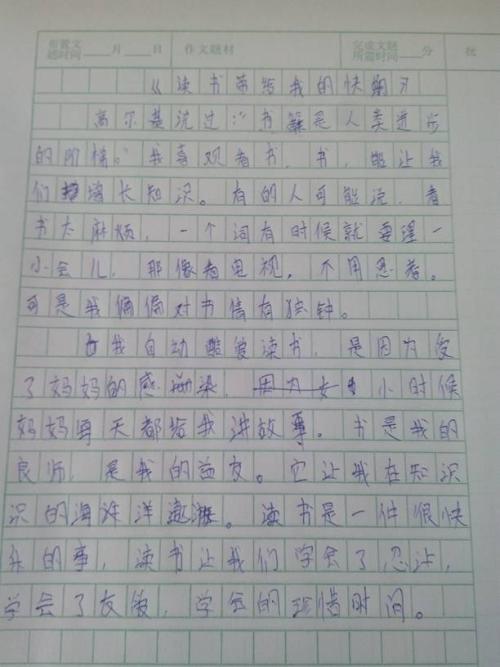 布置文题时间____月____日 作文题材 完成文题所需时间____分 批
《读书带给我的快乐》
高尔基说过:“书籍是人类进步
的阶梯。”我喜观看书,书,能让我
们增长知识。有的人可能说,看
书太麻烦,一个词有时候就要理一
小会儿,那像看电视,不用思考。
可是我偏偏对书情有独钟。
我自动酷爱读书,是因为受
了妈妈的感染,小时候
妈妈每天都给我讲故事。书是我的
良师,是我的益友。它让我在知识
识的海洋遨游。读书是一件很快
乐的事,读书让我们学会了忍让,
学会了友爱,学会的珍惜时间。